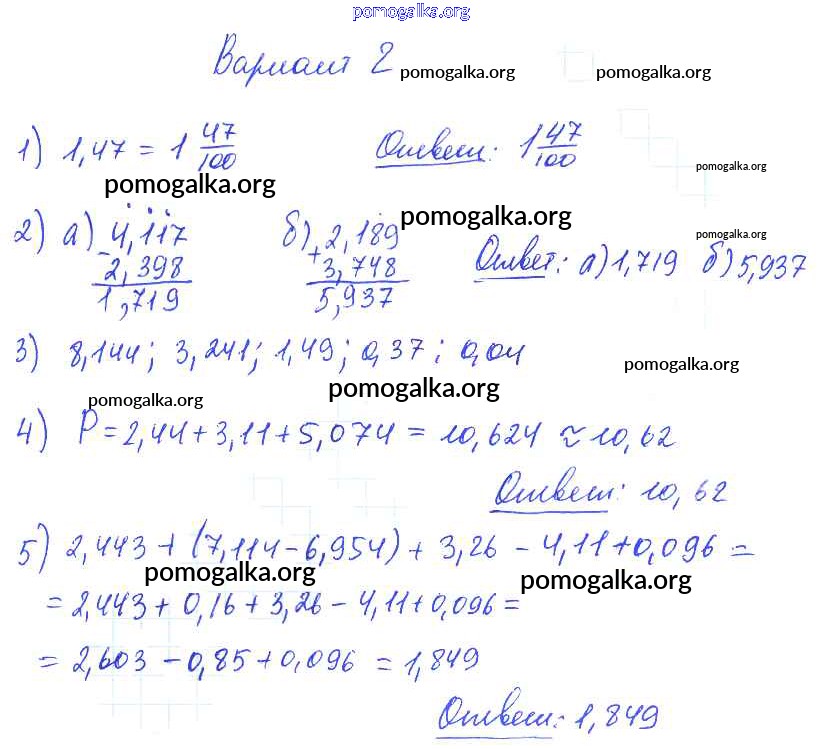 pomogalka.org
Вариант 2 pomogalka.org pomogalka.org
1) 1,47 = 1 47/100 Ответ: 1 47/100 pomogalka.org
pomogalka.org
pomogalka.org
2) а) - 4,117 б) + 2,189 pomogalka.org
2,398 3,748 Ответ: а) 1,719 б) 5,937
1,719 5,937
3) 8,144; 3,241; 1,49; 0,37; 0,04
pomogalka.org
pomogalka.org
pomogalka.org
4) P = 2,44 + 3,11 + 5,074 = 10,624 ≈ 10,62
Ответ: 10,62
5) 2,443 + (7,114 - 6,954) + 3,26 - 4,11 + 0,096 =
pomogalka.org pomogalka.org
= 2,443 + 0,16 + 3,26 - 4,11 + 0,096 =
= 2,603 - 0,85 + 0,096 = 1,849
Ответ: 1,849